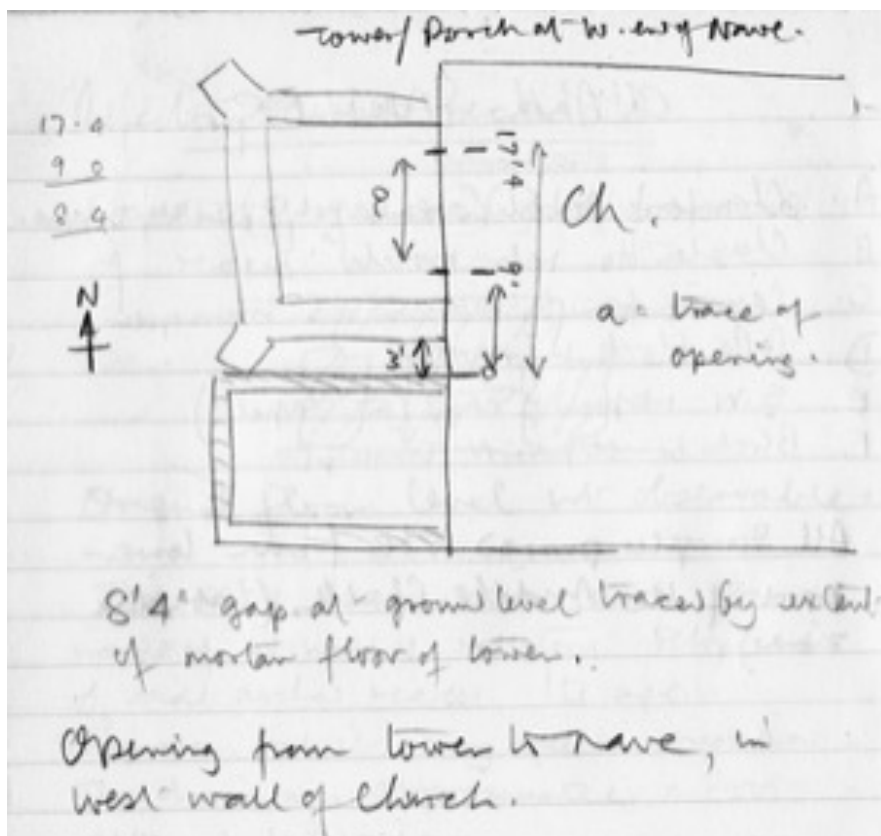 Tower/Porch at W. end of Nave.
17.4
9 0
8 4
17'4
Ch.
9'
N
3'
a = trace of
opening.
8'4" gap at ground level traced by extent
of mortar floor of tower.
Opening from tower to nave, in
west wall of Church.